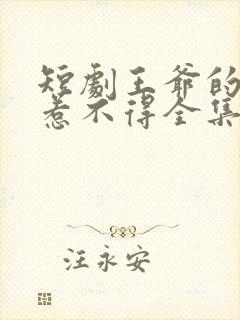 短劇王爺的
惹不得全集
汪永安